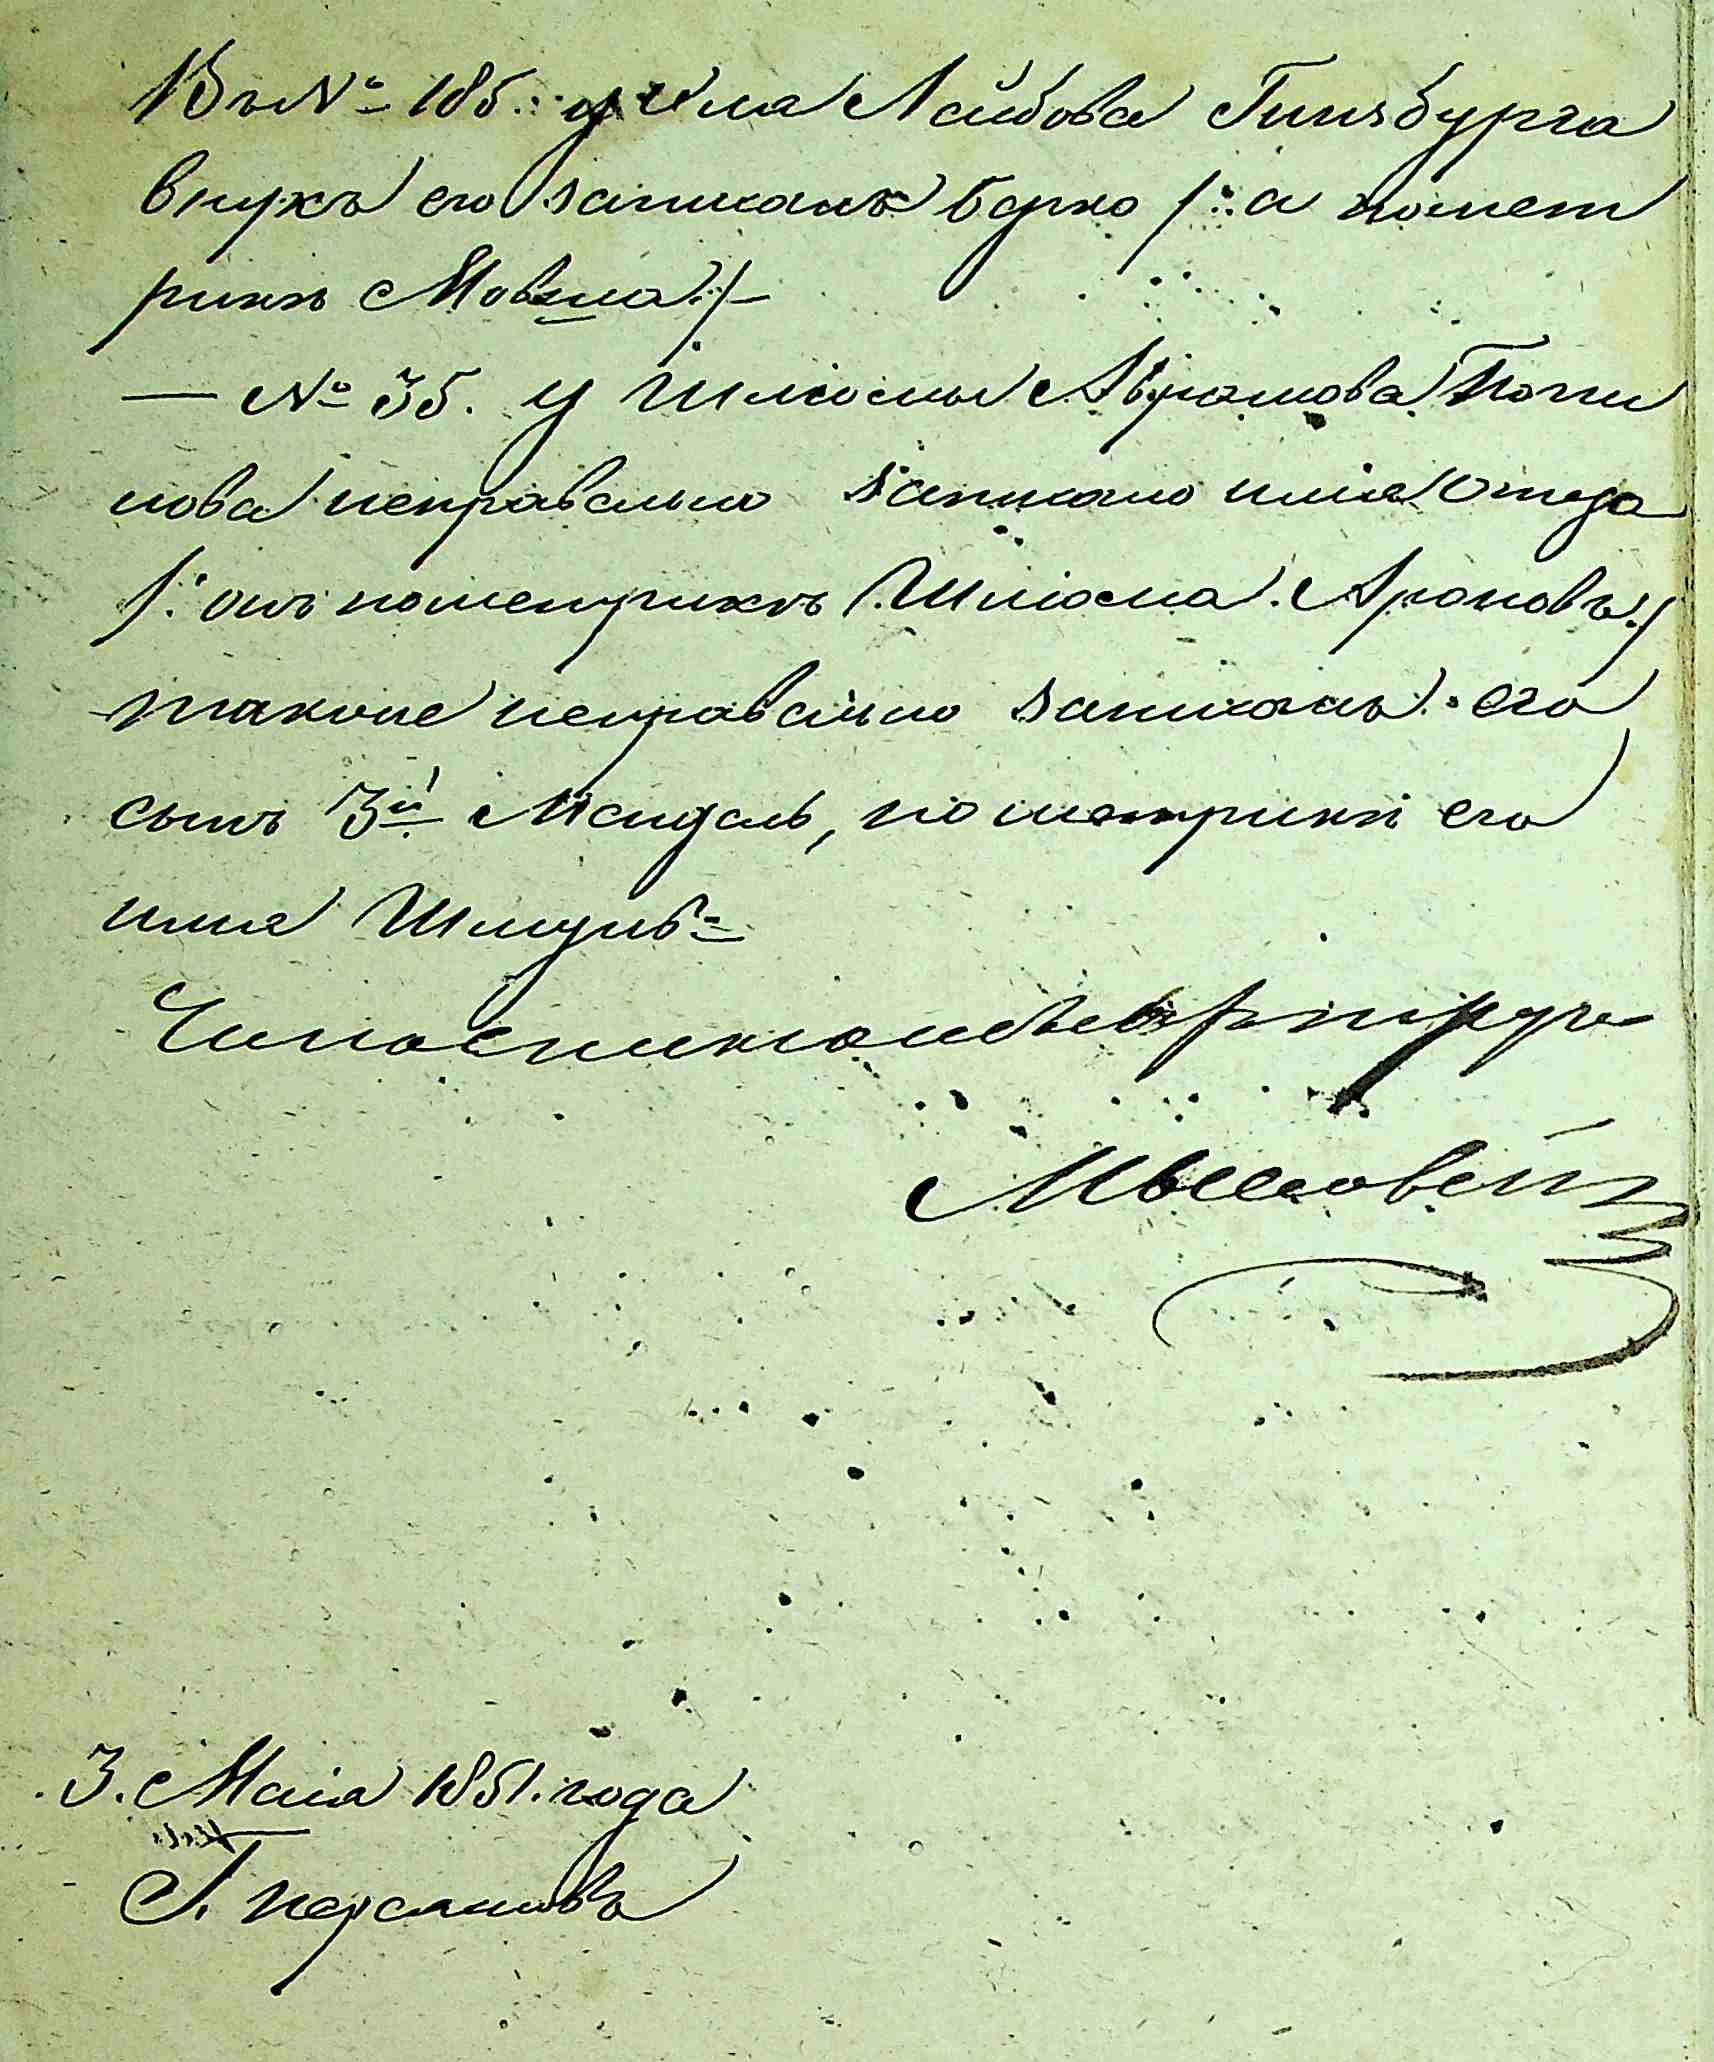 Въ № 185. у Лейбова Гинзбурга
внукъ его записанъ Берко /: а помет
рики Мовша :/
— № 35. у Шліомы Абрамова
нова неправельно записано имя отца
/: онъ пометрикъ Шліома Ароновъ :/
также неправельно записанъ его
сынъ 3й Мендель, по метрики его
имя Шмуль
3. Маія 1851. года
Г. Персановъ